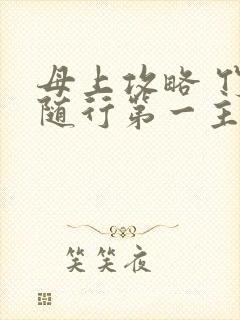 母上攻略
随行第一主
笑笑夜